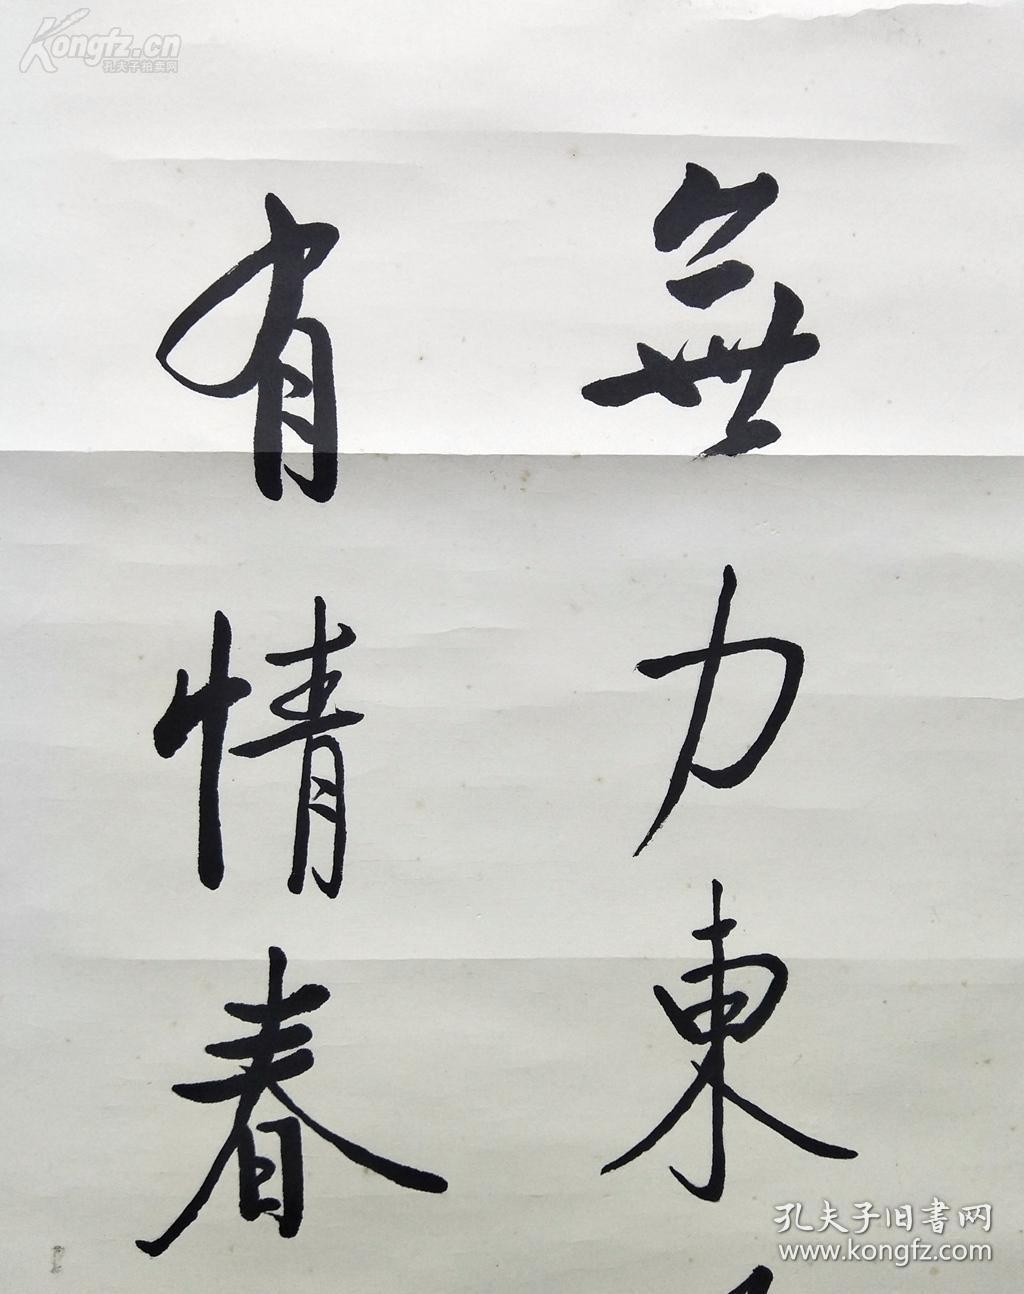 無力東
有情春
Kongfz.cn
孔夫子拍卖网
孔夫子旧書网
www.kongfz.com